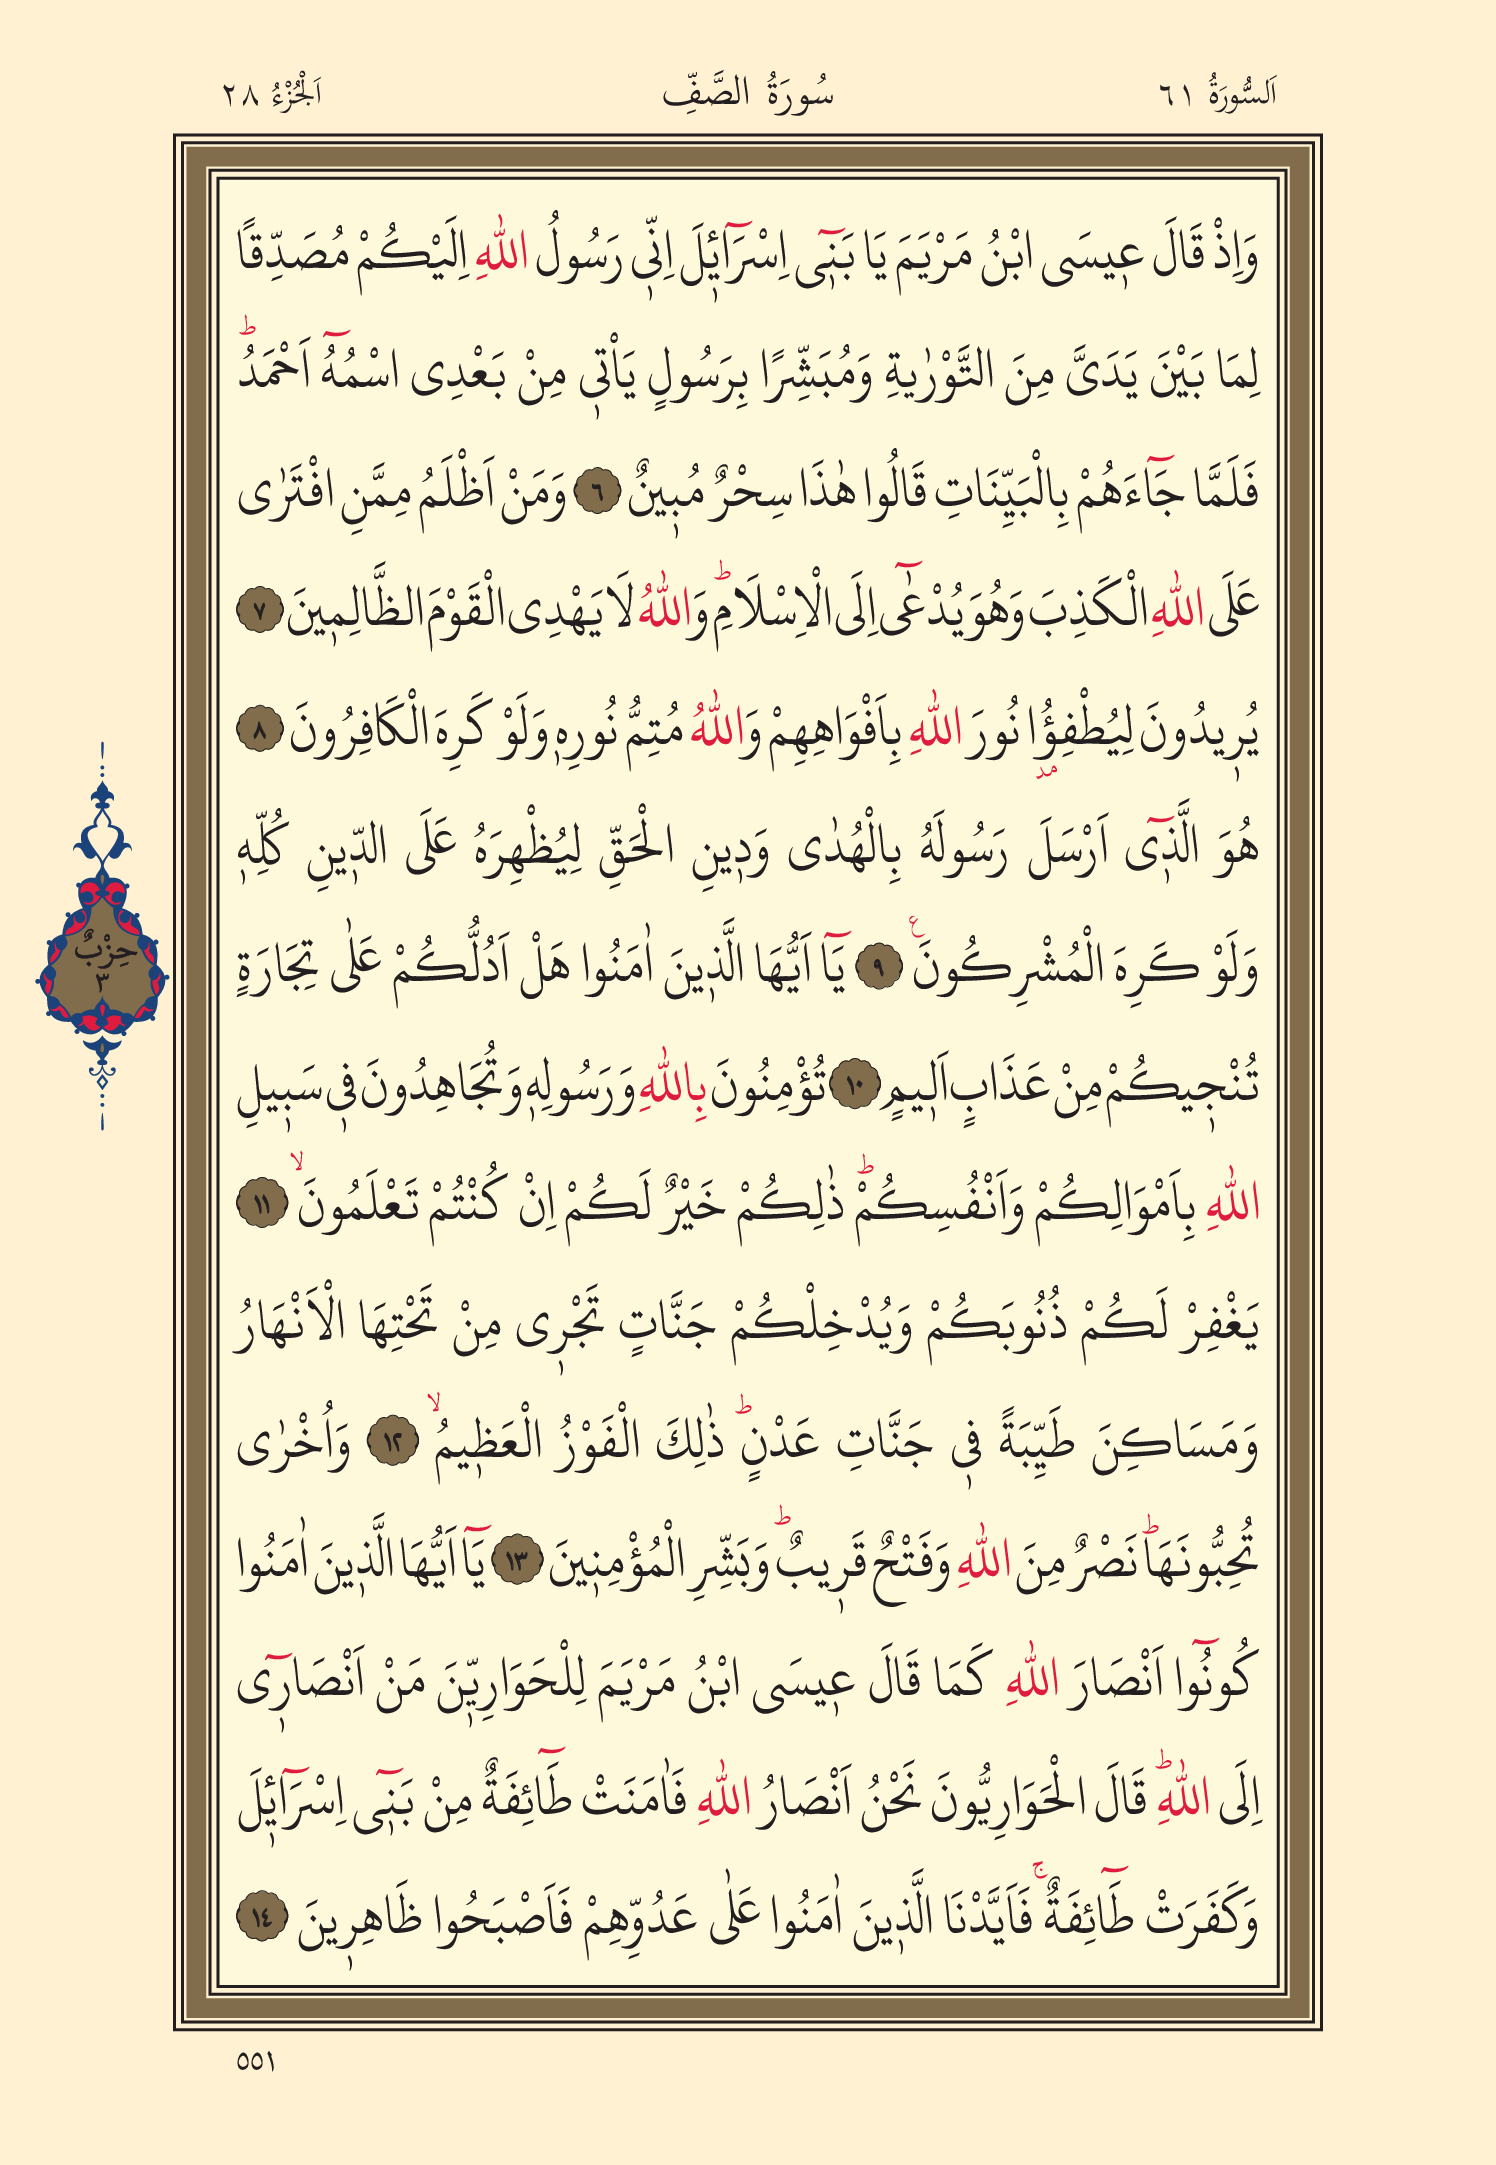 اَلسُّورَةُ ٦١
سُورَةُ الصَّفِّ
اَلْجُزْءُ ٢٨
وَاِذْ قَالَ عٖيسَى ابْنُ مَرْيَمَ يَا بَنٖٓى اِسْرَٓائٖلَ اِنّٖى رَسُولُ اللّٰهِ اِلَيْكُمْ مُصَدِّقًا
لِمَا بَيْنَ يَدَىَّ مِنَ التَّوْرٰيةِ وَمُبَشِّرًا بِرَسُولٍ يَاْتٖى مِنْ بَعْدِى اسْمُهُٓ اَحْمَدُؕ
فَلَمَّا جَٓاءَهُمْ بِالْبَيِّنَاتِ قَالُوا هٰذَا سِحْرٌ مُبٖينٌ ٦ وَمَنْ اَظْلَمُ مِمَّنِ افْتَرٰى
عَلَى اللّٰهِ الْكَذِبَ وَهُوَ يُدْعٰٓى اِلَى الْاِسْلَامِؕ وَاللّٰهُ لَا يَهْدِى الْقَوْمَ الظَّالِمٖينَ ٧
يُرٖيدُونَ لِيُطْفِؤُا نُورَ اللّٰهِ بِاَفْوَاهِهِمْ وَاللّٰهُ مُتِمُّ نُورِهٖ وَلَوْ كَرِهَ الْكَافِرُونَ ٨
مد
هُوَ الَّذٖٓى اَرْسَلَ رَسُولَهُ بِالْهُدٰى وَدٖينِ الْحَقِّ لِيُظْهِرَهُ عَلَى الدّٖينِ كُلِّهٖ
وَلَوْ كَرِهَ الْمُشْرِكُونَ ع ٩ يَٓا اَيُّهَا الَّذٖينَ اٰمَنُوا هَلْ اَدُلُّكُمْ عَلٰى تِجَارَةٍ
حِزْبٌ
٣
تُنْجٖيكُمْ مِنْ عَذَابٍ اَلٖيمٍ ١٠ تُؤْمِنُونَ بِاللّٰهِ وَرَسُولِهٖ وَتُجَاهِدُونَ فٖى سَبٖيلِ
اللّٰهِ بِاَمْوَالِكُمْ وَاَنْفُسِكُمْؕ ذٰلِكُمْ خَيْرٌ لَكُمْ اِنْ كُنْتُمْ تَعْلَمُونَۙ ١١
يَغْفِرْ لَكُمْ ذُنُوبَكُمْ وَيُدْخِلْكُمْ جَنَّاتٍ تَجْرٖى مِنْ تَحْتِهَا الْاَنْهَارُ
وَمَسَاكِنَ طَيِّبَةً فٖى جَنَّاتِ عَدْنٍؕ ذٰلِكَ الْفَوْزُ الْعَظٖيمُۙ ١٢ وَاُخْرٰى
تُحِبُّونَهَاؕ نَصْرٌ مِنَ اللّٰهِ وَفَتْحٌ قَرٖيبٌؕ وَبَشِّرِ الْمُؤْمِنٖينَ ١٣ يَٓا اَيُّهَا الَّذٖينَ اٰمَنُوا
كُونُٓوا اَنْصَارَ اللّٰهِ كَمَا قَالَ عٖيسَى ابْنُ مَرْيَمَ لِلْحَوَارِيّٖنَ مَنْ اَنْصَارٖٓى
اِلَى اللّٰهِؕ قَالَ الْحَوَارِيُّونَ نَحْنُ اَنْصَارُ اللّٰهِ فَاٰمَنَتْ طَٓائِفَةٌ مِنْ بَنٖٓى اِسْرَٓائٖلَ
وَكَفَرَتْ طَٓائِفَةٌۚ فَاَيَّدْنَا الَّذٖينَ اٰمَنُوا عَلٰى عَدُوِّهِمْ فَاَصْبَحُوا ظَاهِرٖينَ ١٤
٥٥١